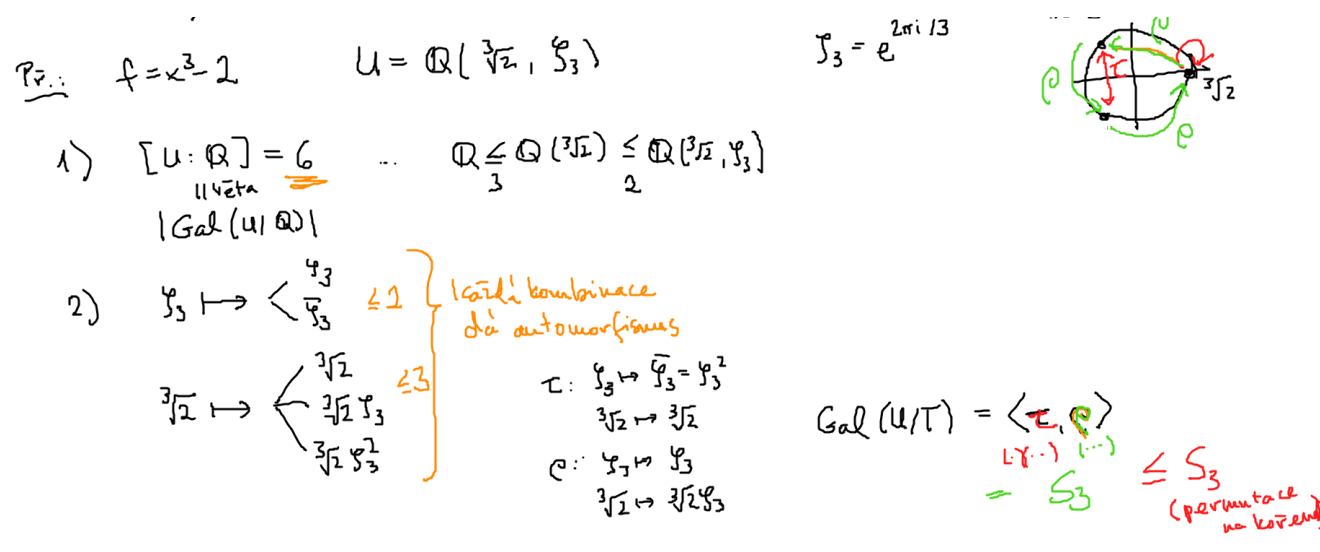 Př.: f = x³ - 2 U = ℚ(∛2, ζ₃) ζ₃ = e^{2πi/3}
ρ τ ρ ρ ∛2
1) [U : ℚ] = 6 ... ℚ ≤ ℚ(∛2) ≤ ℚ(∛2, ζ₃)
3 2
|| věta
|Gal(U/ℚ)|
2) ζ₃ ↦ ζ₃
ζ̄₃
≤ 2
∛2 ↦ ∛2
∛2 ζ₃
∛2 ζ₃²
≤ 3
každá kombinace
dá automorfismus
τ: ζ₃ ↦ ζ̄₃ = ζ₃²
∛2 ↦ ∛2
ρ: ζ₃ ↦ ζ₃
∛2 ↦ ∛2 ζ₃
Gal(U/T) = ⟨τ, ρ⟩
(·)(··) (···)
= S₃
≤ S₃
(permutace
na kořenech